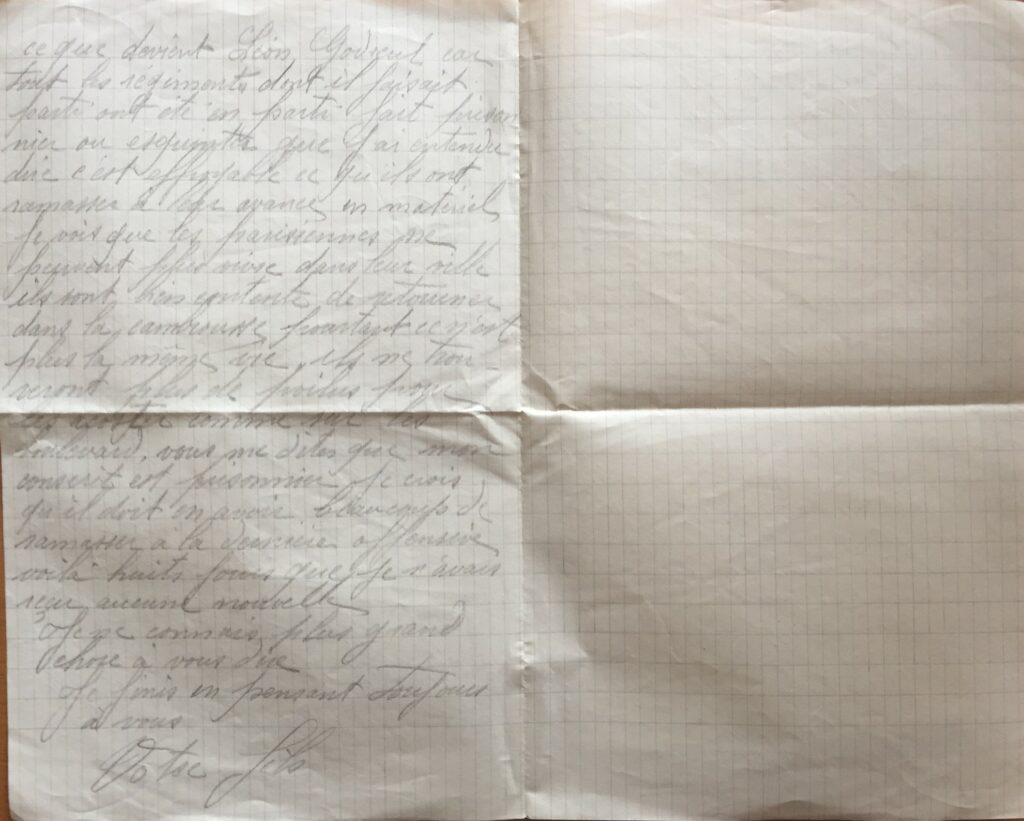 ce que devient Léon car
tout les regiments dont il faisait
parti ont été en parti fait prison
nier ou esquintés que j'ai entendu
dire c'est effroyable ce qu'ils ont
ramasser à leur avance en matériel
Je vois que les parisiennes ne
peuvent plus vivre dans leur ville
ils sont bien contente de retourner
dans la cambrousse pourtant ce n'est
plus la même vie ils ne trou
veront plus de poilus pour
les comme sur les
boulevard, vous me dites que mon
conscrit est prisonnier Je crois
qu'il doit en avoir beaucoup de
ramasser à la dernière offensive
voilà huits jours que je n'avais
reçu aucune nouvelle
Je ne connais plus grand
chose à vous dire
Je finis en pensant toujours
à vous
Votre fils